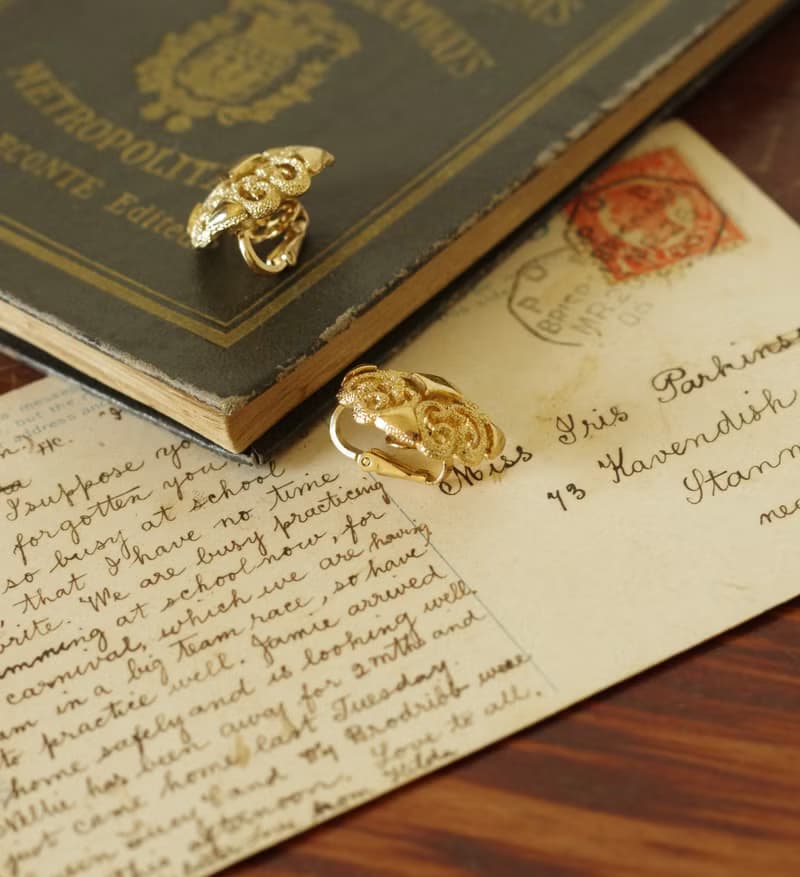 METROPOLIT
ECONTE Editeu
P O
BRISB
MR 2
06
Miss Iris Parkinso
73 Kavendish
Stanm
nea
s messa
but the
address an
I suppose yo
forgotten you
so busy at school
that I have no time
write. We are busy practicing
mming at school now, for
carnival, which we are having
am in a big team race, so have
to practice well. Jamie arrived
home safely and is looking well.
Nellie has been away for 2 mths and
just came home last Tuesday.
Lucy and Brodribb were
this afternoon. Love to all.
from Hilda